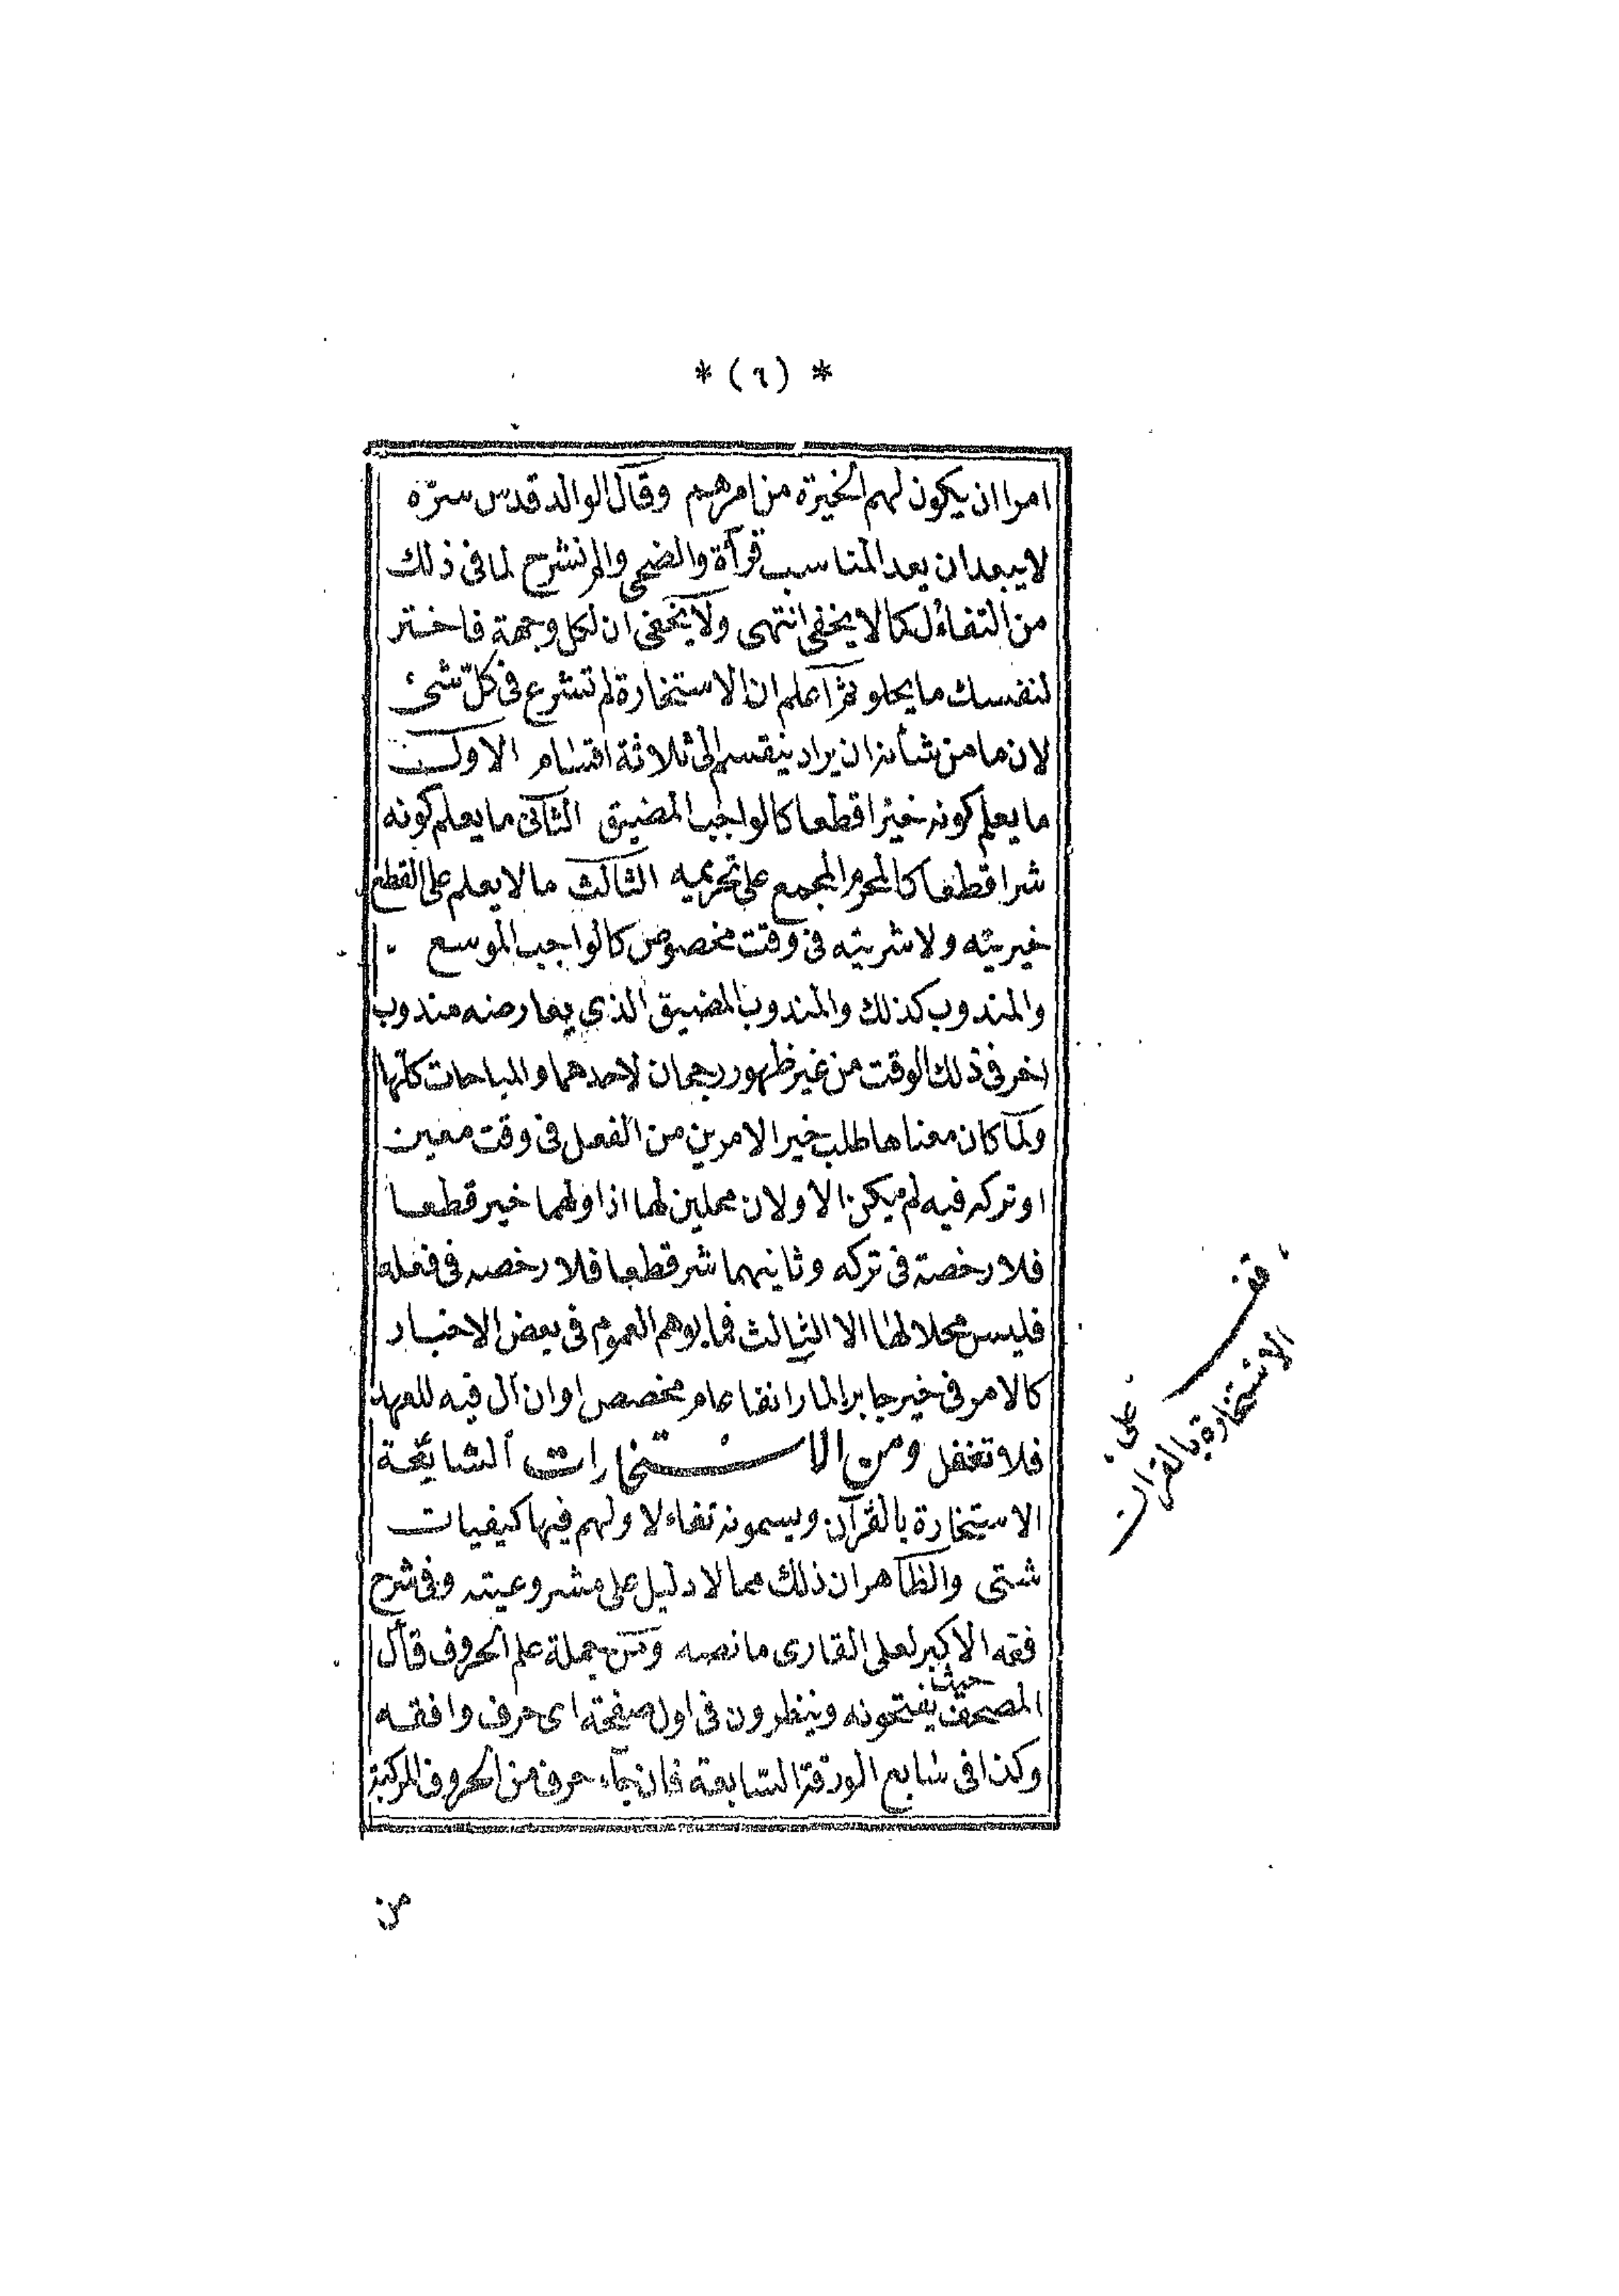 * (٦) *
امرا ان يكون لهم الخيرة من امرهم وقال الوالد قدس سره
لا يبعد ان يعد المناسب قرأة والضحى والم نشرح لما فى ذلك
من التفاءل كما لا يخفى انتهى ولا يخفى ان لكل وجهة فاختر
لنفسك ما يحلو ثم اعلم ان الاستخارة لم تشرع فى كلّ شئ
لان ما من شأنه ان يراد ينقسم الى ثلاثة اقسام الاول
ما يعلم كونه خيرا قطعا كالواجب المضيق الثانى ما يعلم كونه
شرا قطعا كالمحرم المجمع على تحريمه الثالث ما لا يعلم على القطع
خيريته ولا شريته فى وقت مخصوص كالواجب الموسع
والمندوب كذلك والمندوب المضيق الذى يعارضه مندوب
اخر فى ذلك الوقت من غير ظهور رجحان لاحدهما والمباحات كلّها
ولما كان معناها طلب خير الامرين من الفعل فى وقت معين
او تركه فيه لم يكن الاولان محلين لها اذ اولهما خير قطعا
فلا رخصة فى تركه وثانيهما شر قطعا فلا رخصه فى فعله
فليس محلا لها الا الثالث فما يوهم العموم فى بعض الاخبار
كالامر فى خبر جابر المار انفا عام مخصص او ان ال فيه للعهد
فلا تغفل ومن الاستخارات الشايعة
الاستخارة بالقرآن ويسمونه تفاءلا ولهم فيها كيفيات
شتى والظاهر ان ذلك مما لا دليل على مشروعيته وفى شرح
فقه الاكبر لعلى القارى ما نصه ومن جملة علم الحروف قال
المصحف حيث يفتحونه وينظرون فى اول صفحة اى حرف وافقه
وكذا فى سابع الورقة السابعة فان جاء حرف من الحروف المركبة
من
قف
على
الاستخارة بالقران